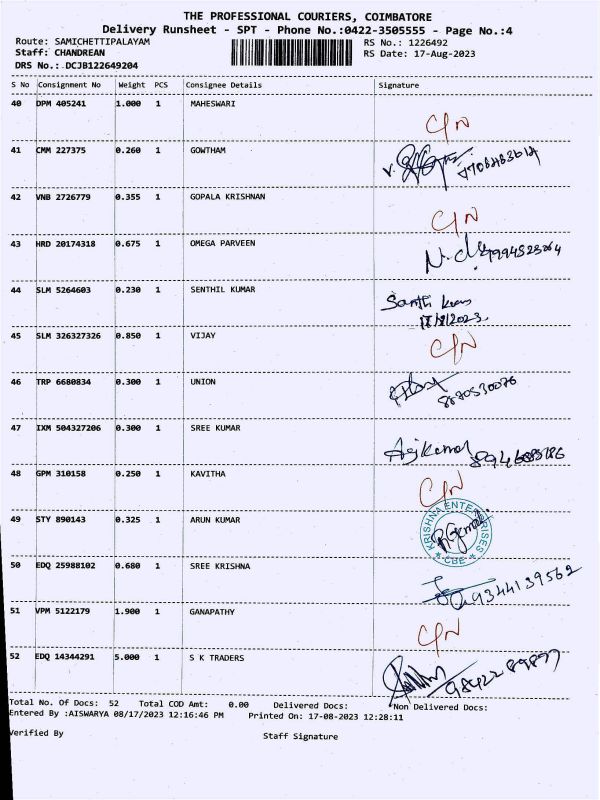 THE PROFESSIONAL COURIERS, COIMBATORE
Delivery Runsheet - SPT - Phone No.:0422-3505555 - Page No.:4
Route: SAMICHETTIPALAYAM RS No.: 1226492
Staff: CHANDREAN RS Date: 17-Aug-2023
DRS No.: DCJB122649204
S No Consignment No Weight PCS Consignee Details Signature
40 DPM 405241 1.000 1 MAHESWARI
C/N
41 CMM 227375 0.260 1 GOWTHAM
42 VNB 2726779 0.355 1 GOPALA KRISHNAN
C/N
43 HRD 20174318 0.675 1 OMEGA PARVEEN
44 SLM 5264603 0.230 1 SENTHIL KUMAR
17/8/2023
45 SLM 326327326 0.850 1 VIJAY
C/N
46 TRP 6680834 0.300 1 UNION
8870530076
47 IXM 504327206 0.300 1 SREE KUMAR
48 GPM 310158 0.250 1 KAVITHA
C/N
49 STY 890143 0.325 1 ARUN KUMAR
KRISHNA ENTERPRISES
* CBE *
50 EDQ 25988102 0.680 1 SREE KRISHNA
9344139562
51 VPM 5122179 1.900 1 GANAPATHY
C/N
52 EDQ 14344291 5.000 1 S K TRADERS
9842289877
Total No. Of Docs: 52 Total COD Amt: 0.00 Delivered Docs: Non Delivered Docs:
Entered By :AISWARYA 08/17/2023 12:16:46 PM Printed On: 17-08-2023 12:28:11
Verified By Staff Signature